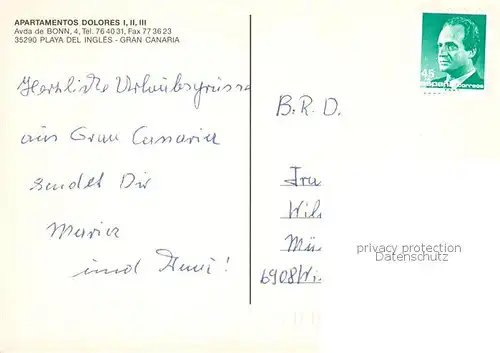 APARTAMENTOS DOLORES I, II, III
Avda de BONN, 4, Tel. 76 40 31, Fax 77 36 23
35290 PLAYA DEL INGLÉS - GRAN CANARIA
45
ESPAÑA correos
Herzliche Urlaubsgrüsse
aus Gran Canaria
sendet Dir
Maria
und
B.R.D.
Fra
Wil
Mü
6908 Wi
privacy protection
Datenschutz